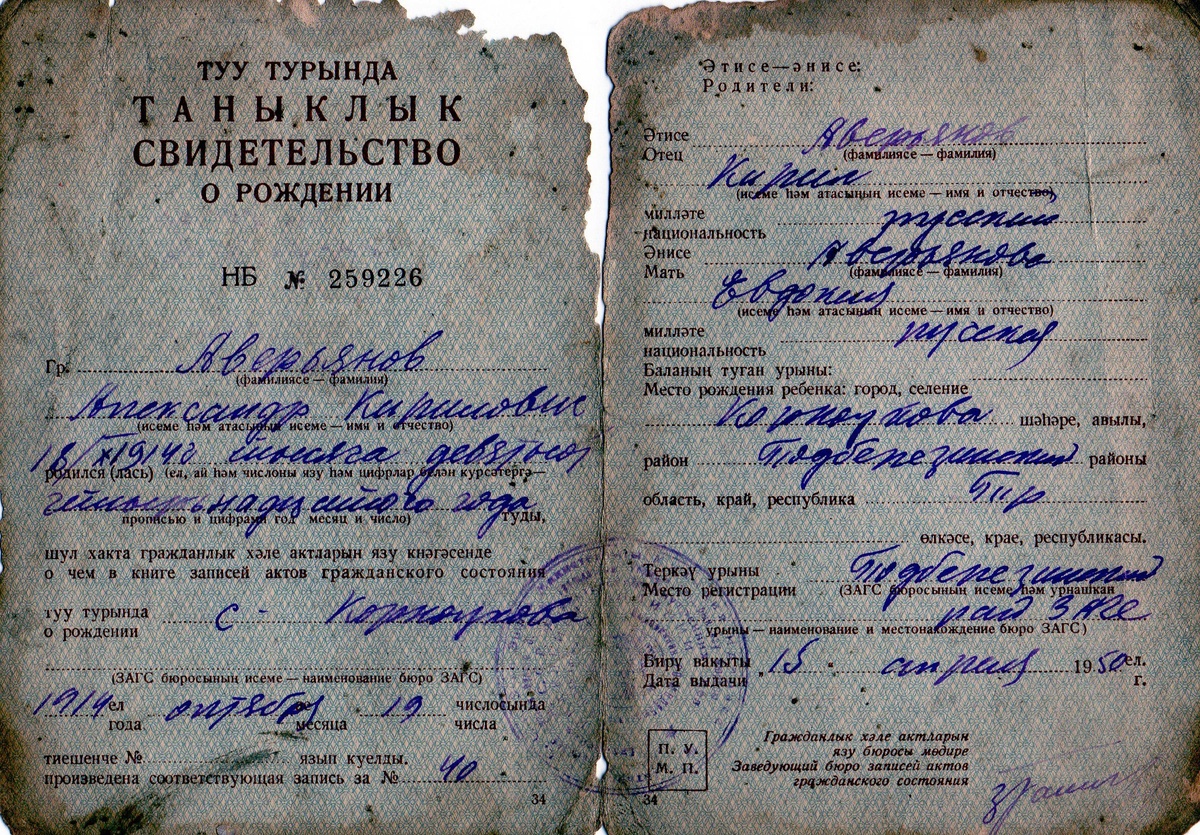 ТУУ ТУРЫНДА
ТАНЫКЛЫК
СВИДЕТЕЛЬСТВО
О РОЖДЕНИИ
НБ № 259226
Гр. Аверьянов
(фамилиясе — фамилия)
Александр Кирилович
(исеме һәм атасының исеме — имя и отчество)
родился (лась) (ел, ай һәм числоны язу һәм цифрлар белән курсәтергә—
надцатого года
прописью и цифрами год месяц и число) туды,
шул хакта гражданлык хәле актларын язу кнәгәсенде
о чем в книге записей актов гражданского состояния
туу турында
о рождении
с - Корноухова
(ЗАГС бюросының исеме — наименование бюро ЗАГС)
1914 ел октября 19 числосында
года месяца числа
тиешенче № язып куелды.
произведена соответствующая запись за № 40
34
Әтисе—әнисе:
Родители:
Әтисе
Отец
Аверьянов
(фамилиясе — фамилия)
Кирил
(исеме һәм атасының исеме — имя и отчество)
милләте
национальность
русский
Әнисе
Мать
Аверьянова
(фамилиясе — фамилия)
Евдокия
(исеме һәм атасының исеме — имя и отчество)
милләте
национальность
русская
Баланың туган урыны:
Место рождения ребенка: город, селение
Корноухова шәһәре, авылы,
район Подберезинский районы
область, край, республика
өлкәсе, крае, республикасы.
Теркәү урыны
Место регистрации
Подберезинский
(ЗАГС бюросының исеме һәм урнашкан
рай ЗАГС
урыны — наименование и местонахождение бюро ЗАГС)
Бирү вакыты
Дата выдачи
15 апреля 1950 ел.
г.
П. У.
М. П.
Гражданлык хәле актларын
язу бюросы мөдире
Заведующий бюро записей актов
гражданского состояния
34